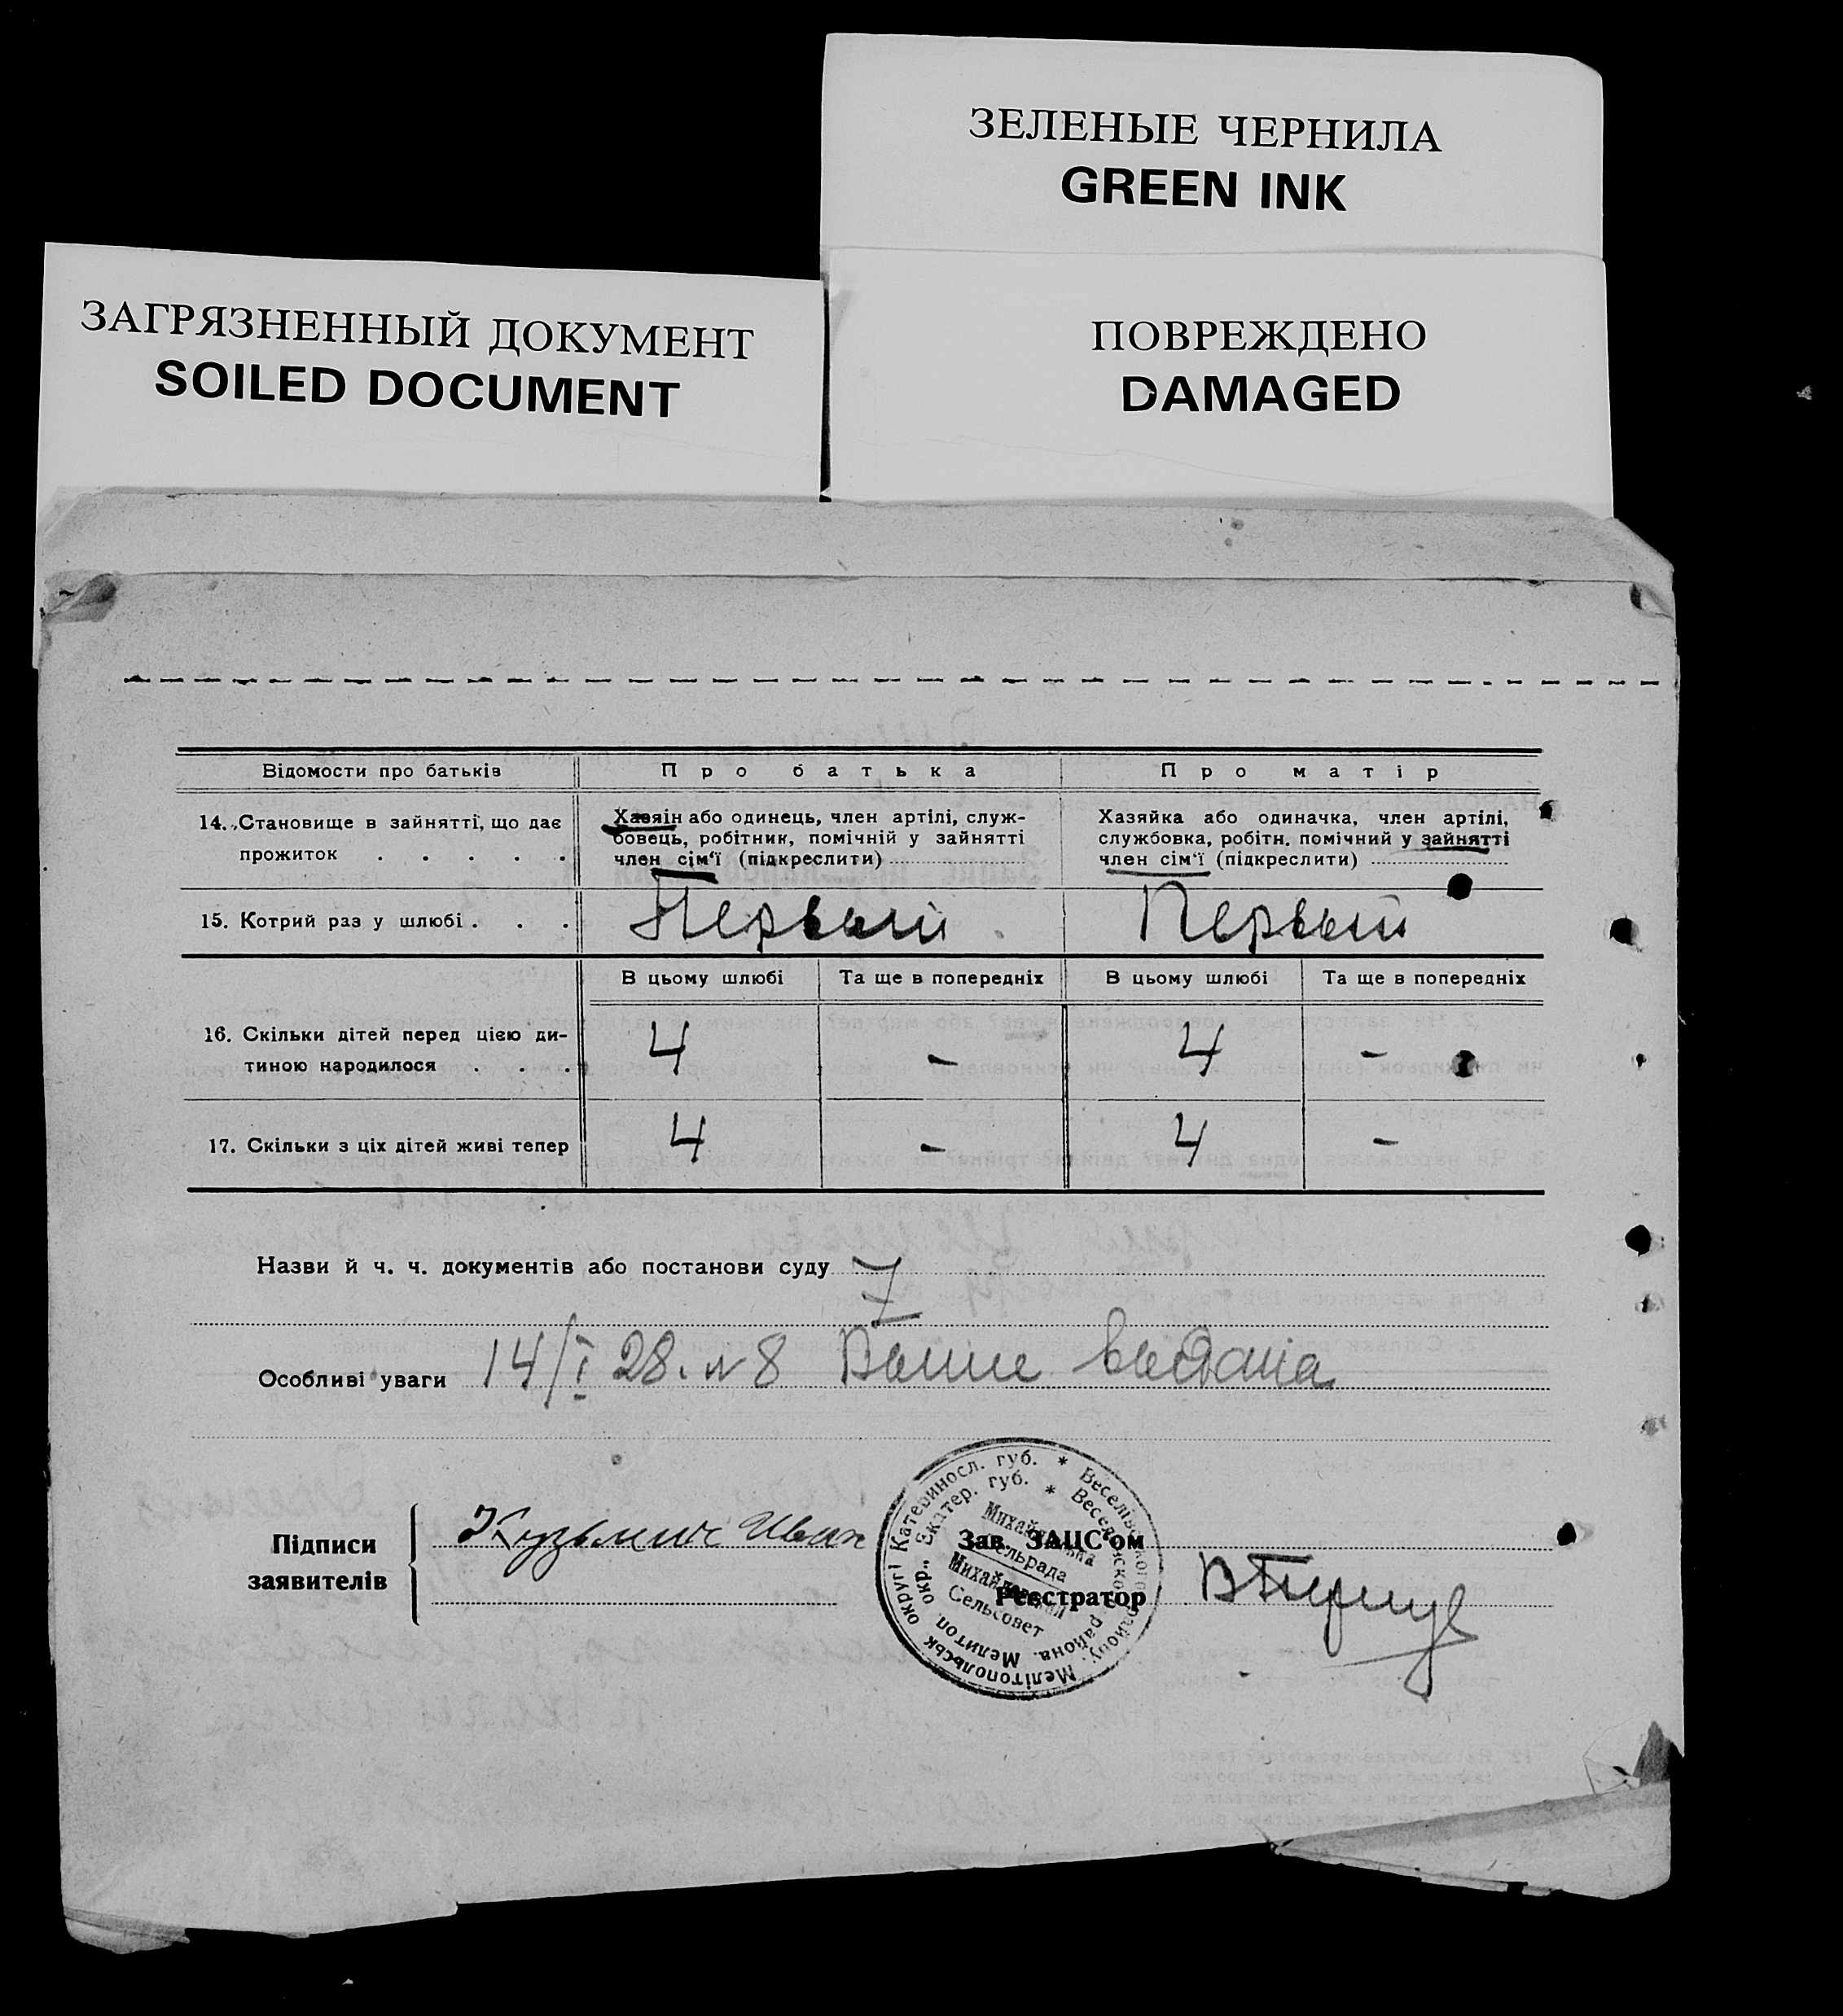 ЗЕЛЕНЫЕ ЧЕРНИЛА
GREEN INK
ЗАГРЯЗНЕННЫЙ ДОКУМЕНТ
SOILED DOCUMENT
ПОВРЕЖДЕНО
DAMAGED
Відомости про батьків
Про батька
Про матір
14. Становище в зайнятті, що дає
прожиток . . . . .
Хазяїн або одинець, член артілі, служ-
бовець, робітник, помічній у зайнятті
член сім'ї (підкреслити)
Хазяйка або одиначка, член артілі,
службовка, робітн. помічний у зайнятті
член сім'ї (підкреслити)
15. Котрий раз у шлюбі . . .
Первый
Первый
В цьому шлюбі
Та ще в попередніх
В цьому шлюбі
Та ще в попередніх
16. Скільки дітей перед цією ди-
тиною народилося . . .
4
-
4
-
17. Скільки з ціх дітей живі тепер
4
-
4
-
Назви й ч. ч. документів або постанови суду
Особливі уваги 14/I 28. №8
Підписи
заявителів
Кузьмич Иван
Зав. ЗАЦС'ом
Реєстратор
Катериносл. губ. * Веселівського району. Мелітопольськ округі
Екатер. губ. * Веселовского района. Мелитоп. окр.
Михайлівська
Сельрада
Михайловский
Сельсовет